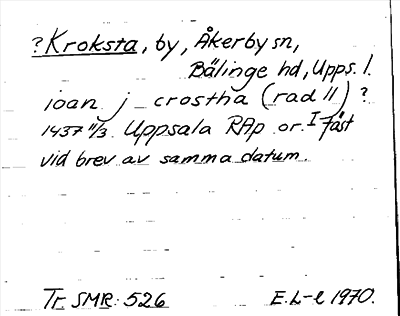 ? Kroksta, by, Åkerby sn,
Bälinge hd, Upps. l.
ioan j crostha (rad 11) ?
1437 11/3 Uppsala RAp or. I fäst
vid brev av samma datum.
Tr. SMR: 526 E.L-l 1970.